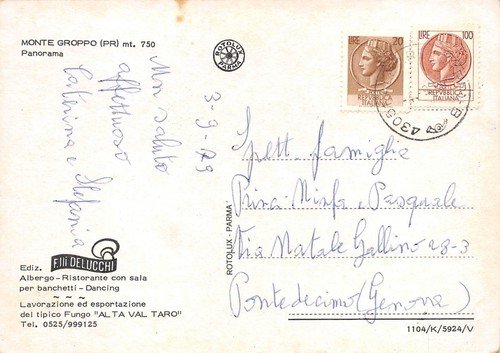 MONTE GROPPO (PR) mt. 750
Panorama
Un saluto
affettuoso
Caterina e Stefania
3-9-79
ROTOLUX
PARMA
LIRE 20
REPVBBLICA
ITALIANA
LIRE 100
REPVBBLICA
ITALIANA
4305
Spett famiglia
Prina Ninfa e Pasquale
Via Natale Gallino 28-3
Pontedecimo (Genova)
ROTOLUX - PARMA
Ediz. F.lli DELUCCHI
Albergo - Ristorante con sala
per banchetti - Dancing
Lavorazione ed esportazione
del tipico Fungo "ALTA VAL TARO"
Tel. 0525/999125
1104/K/5924/V